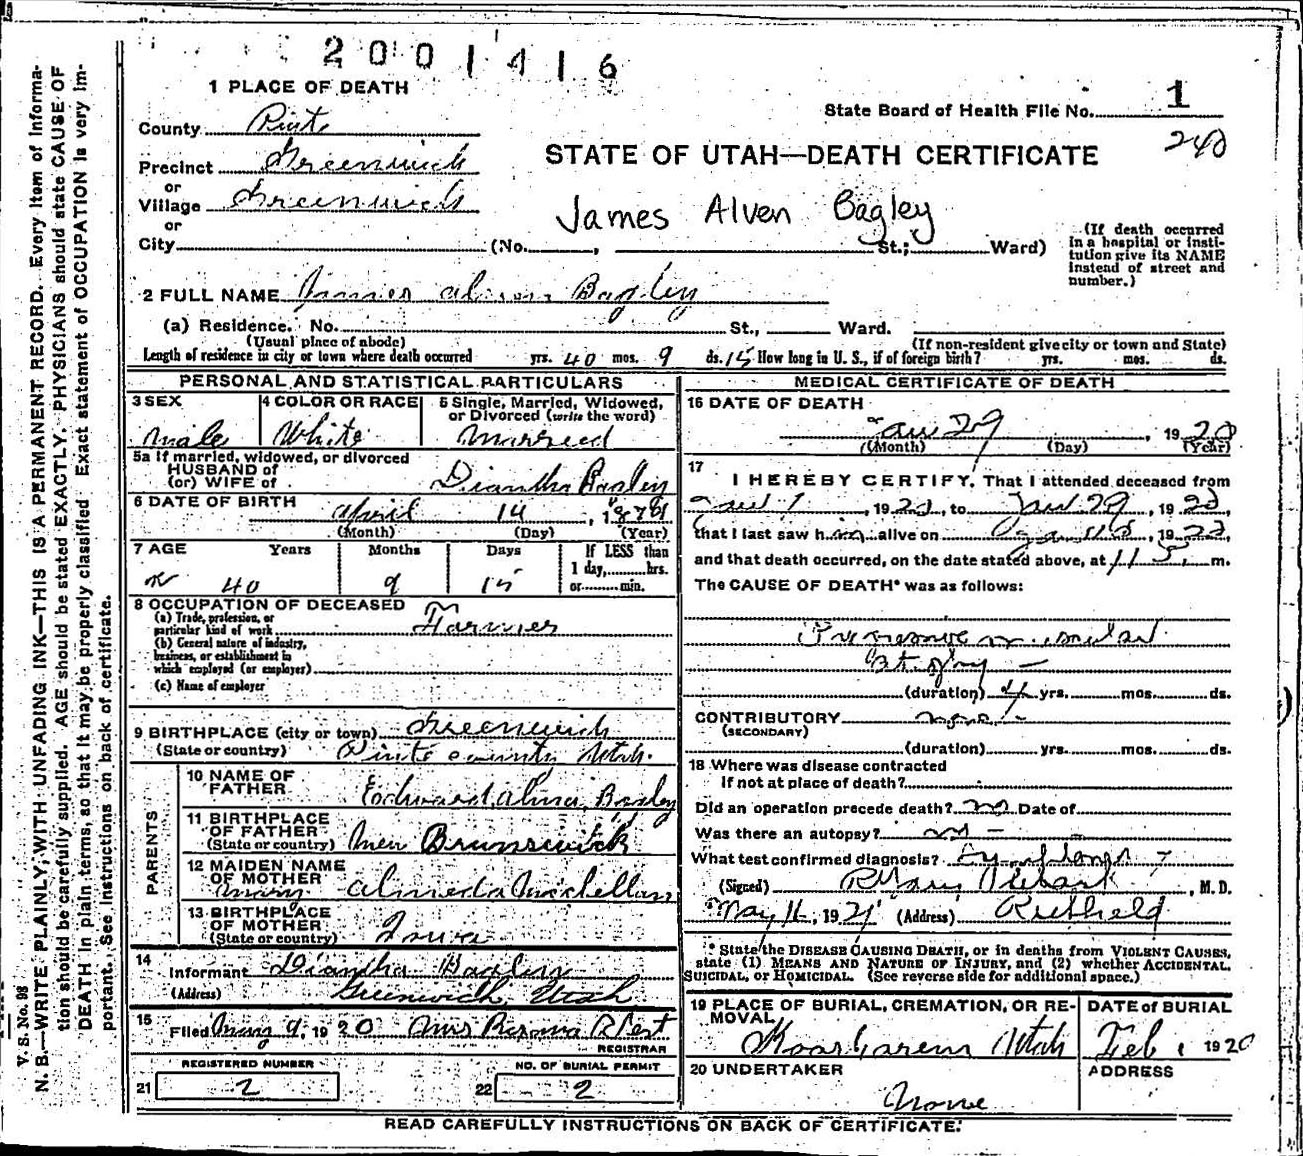 2001416
1 PLACE OF DEATH
State Board of Health File No. 1
240
County
STATE OF UTAH—DEATH CERTIFICATE
Precinct Greenwich
or
Village Greenwich
James Alven Bagley
or
City (No. , St.; Ward)
(If death occurred
in a hospital or insti-
tution give its NAME
instead of street and
number.)
2 FULL NAME James Bagley
(a) Residence. No. St., Ward.
(Usual place of abode) (If non-resident give city or town and State)
Length of residence in city or town where death occurred yrs. 40 mos. 9 ds. 15 How long in U. S., if of foreign birth? yrs. mos. ds.
PERSONAL AND STATISTICAL PARTICULARS
3 SEX 4 COLOR OR RACE 5 Single, Married, Widowed,
or Divorced (write the word)
Male White Married
5a If married, widowed, or divorced
HUSBAND of
(or) WIFE of Diantha Bagley
6 DATE OF BIRTH
April 14
(Month) (Day) (Year)
7 AGE Years Months Days If LESS than
1 day, hrs.
or min.
40 9 15
8 OCCUPATION OF DECEASED
(a) Trade, profession, or
particular kind of work Farmer
(b) General nature of industry,
business, or establishment in
which employed (or employer)
(c) Name of employer
9 BIRTHPLACE (city or town) Greenwich
(State or country) Piute county Utah.
PARENTS
10 NAME OF
FATHER Edward Alma Bagley
11 BIRTHPLACE
OF FATHER
(State or country) New Brunswick
12 MAIDEN NAME
OF MOTHER
Mary Almeda
13 BIRTHPLACE
OF MOTHER
(State or country) Iowa
14
Informant Diantha Bagley
(Address) Greenwich, Utah
15
Filed 9, 1920 Mrs
REGISTRAR
REGISTERED NUMBER NO. OF BURIAL PERMIT
21 2 22 2
MEDICAL CERTIFICATE OF DEATH
16 DATE OF DEATH
Jan 29, 1920
(Month) (Day) (Year)
17
I HEREBY CERTIFY, That I attended deceased from
Jan 1, 1920, to Jan 29, 1920,
that I last saw him alive on , 1920,
and that death occurred, on the date stated above, at 11 m.
The CAUSE OF DEATH* was as follows:
(duration) 4 yrs. mos. ds.
CONTRIBUTORY none
(SECONDARY)
(duration) yrs. mos. ds.
18 Where was disease contracted
If not at place of death?
Did an operation precede death? no Date of
Was there an autopsy? no
What test confirmed diagnosis? Symptoms
(Signed) , M. D.
May 16, 1921 (Address) Richfield
* State the DISEASE CAUSING DEATH, or in deaths from VIOLENT CAUSES,
state (1) MEANS AND NATURE OF INJURY, and (2) whether ACCIDENTAL,
SUICIDAL, or HOMICIDAL. (See reverse side for additional space.)
19 PLACE OF BURIAL, CREMATION, OR RE-
MOVAL
DATE of BURIAL
Koosharem Utah Feb 1 1920
20 UNDERTAKER ADDRESS
None
READ CAREFULLY INSTRUCTIONS ON BACK OF CERTIFICATE.
V. S. No. 98
N. B.—WRITE PLAINLY, WITH UNFADING INK—THIS IS A PERMANENT RECORD. Every item of informa-
tion should be carefully supplied. AGE should be stated EXACTLY. PHYSICIANS should state CAUSE OF
DEATH in plain terms, so that it may be properly classified Exact statement of OCCUPATION is very im-
portant. See instructions on back of certificate.